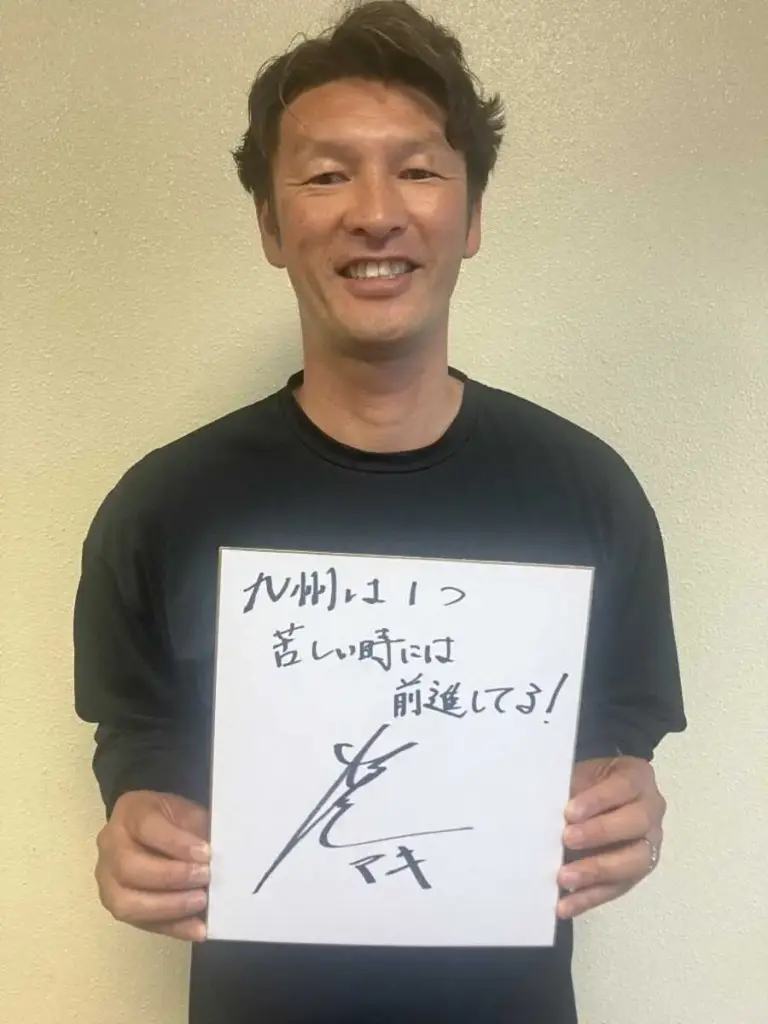 九州は1つ
苦しい時には
前進してる!
マキ